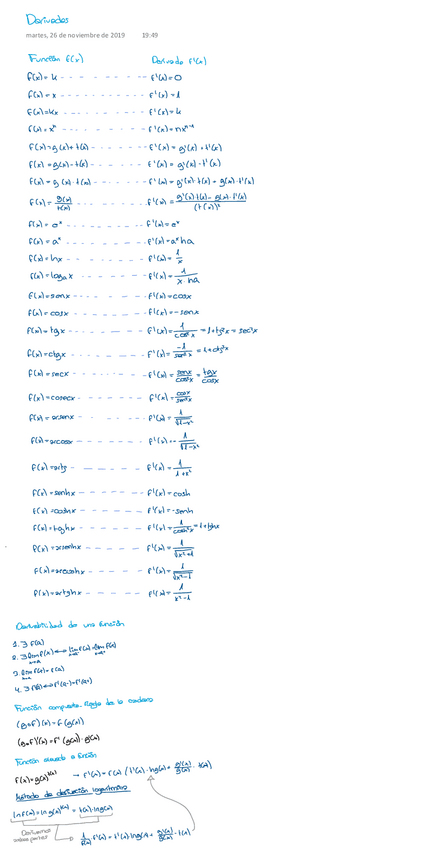 Derivadas
martes, 26 de noviembre de 2019 19:49
Función f(x) Derivada f'(x)
f(x)=k f'(x)=0
f(x)=x f'(x)=1
f(x)=kx f'(x)=k
f(x)=xⁿ f'(x)=nxⁿ⁻¹
f(x)=g(x)+t(x) f'(x)=g'(x)+t'(x)
f(x)=g(x)-t(x) f'(x)=g'(x)-t'(x)
f(x)=g(x)·t(x) f'(x)=g'(x)·t(x)+g(x)·t'(x)
f(x)=g(x)/t(x) f'(x)=g'(x)·t(x)-g(x)·t'(x)/(t(x))²
f(x)=eˣ f'(x)=eˣ
f(x)=aˣ f'(x)=aˣ lna
f(x)=lnx f'(x)=1/x
f(x)=logₐx f'(x)=1/x·lna
f(x)=senx f'(x)=cosx
f(x)=cosx f'(x)=-senx
f(x)=tgx f'(x)=1/cos²x=1+tg²x=sec²x
f(x)=ctgx f'(x)=-1/sen²x=1+ctg²x
f(x)=secx f'(x)=senx/cos²x=tgx/cosx
f(x)=cosecx f'(x)=cosx/sen²x
f(x)=arsenx f'(x)=1/√1-x²
f(x)=arcosx f'(x)=-1/√1-x²
f(x)=artg f'(x)=1/1+x²
f(x)=senhx f'(x)=cosh
f(x)=coshx f'(x)=-senh
f(x)=tghx f'(x)=1/cosh²x=1+tghx
f(x)=arsenhx f'(x)=1/√x²+1
f(x)=arcoshx f'(x)=1/√x²-1
f(x)=artghx f'(x)=1/x²-1
Derivabilidad de una función
1. ∃ f(a)
2. ∃ lim f(x)
3. lim f(x)=f(a)
4. ∃ f'(a)⟺f'(a⁻)=f'(a⁺)
Función compuesta. Regla de la cadena
(g∘f)(x)=f(g(x))
(g∘f)'(x)=f'(g(x))·g'(x)
Función elevada a función
f(x)=g(x)^t(x) → f'(x)=f(x)(t'(x)·lng(x)+g'(x)/g(x)·t(x))
Método de derivación logarítmica
lnf(x)=lng(x)^t(x)=t(x)·lng(x)
Derivamos
ambas partes
1/f(x)·f'(x)=t'(x)·lng(x)+g'(x)/g(x)·t(x)